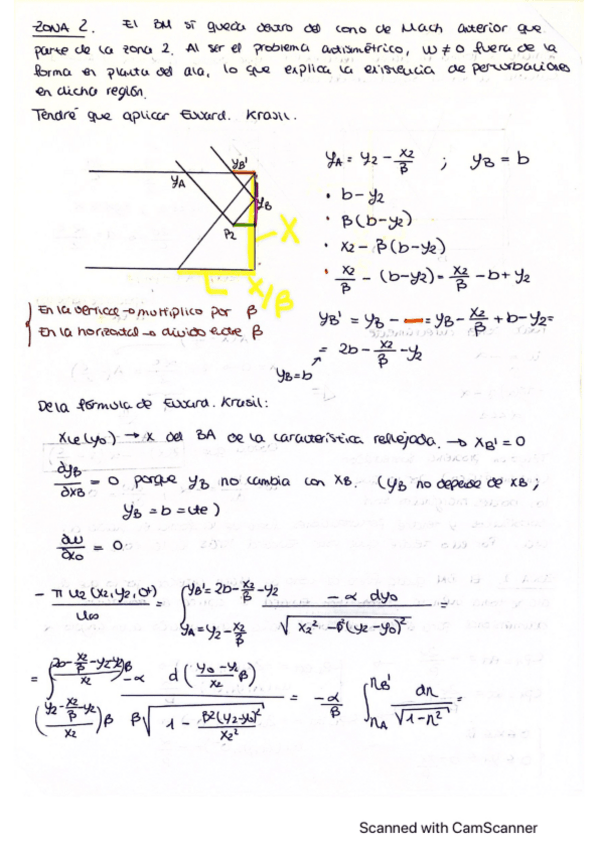 ZONA 2. El BM sí queda dentro del cono de Mach anterior que
parte de la zona 2. Al ser el problema antisimétrico, w ≠ 0 fuera de la
forma en planta del ala, lo que explica la existencia de perturbaciones
en dicha región.
Tendré que aplicar Evvard. Krasil.
yA = y2 - x2/β ; yB = b
• b - y2
• β(b-y2)
• x2 - β(b-y2)
• x2/β - (b-y2) = x2/β - b + y2
yB' = yB - — = yB - x2/β + b - y2 =
= 2b - x2/β - y2
yB = b
yA
yB'
yB
P2
X
L
X/β
En la vertical → multiplico por β
En la horizontal → divido entre β
De la fórmula de Evvard. Krasil:
xLE(y0) → x del BA de la característica reflejada. → xB' = 0
∂yB/∂xB = 0 porque yB no cambia con xB. (yB no depende de xB ;
yB = b = cte)
∂w/∂x0 = 0
- π u2 (x2, y2, 0+)/U∞ = ∫ yA = y2 - x2/β yB' = 2b - x2/β - y2 -α dy0 / √(x2² - β(y2-y0)²) =
= ∫ (y2 - x2/β - y2)β/x2 (2b - x2/β - y2 - y2)β/x2 -α d((y0-y2)/x2 β) / β√(1 - β²(y2-y0)²/x2²) = -α/β ∫ ηA ηB' dη/√(1-η²) =
Scanned with CamScanner